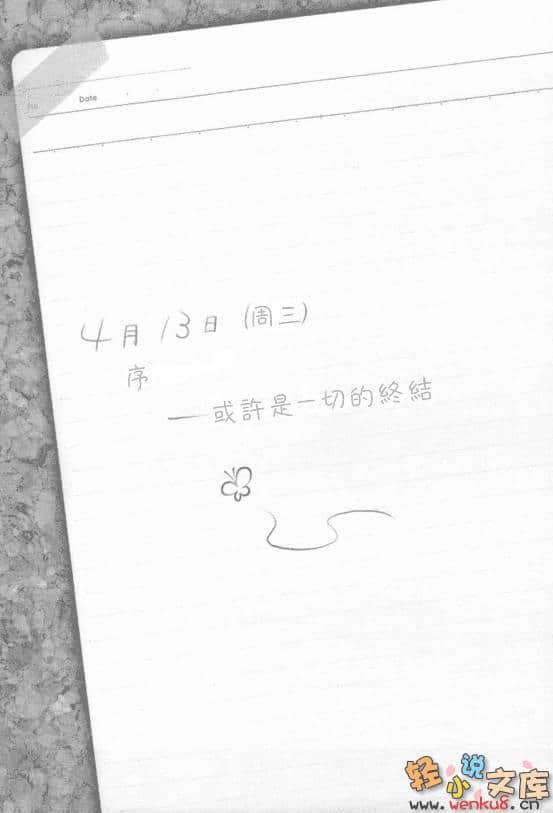 No.
Date
4月13日 (周三)
序
——或許是一切的終結
轻小说文库
www.wenku8.cn